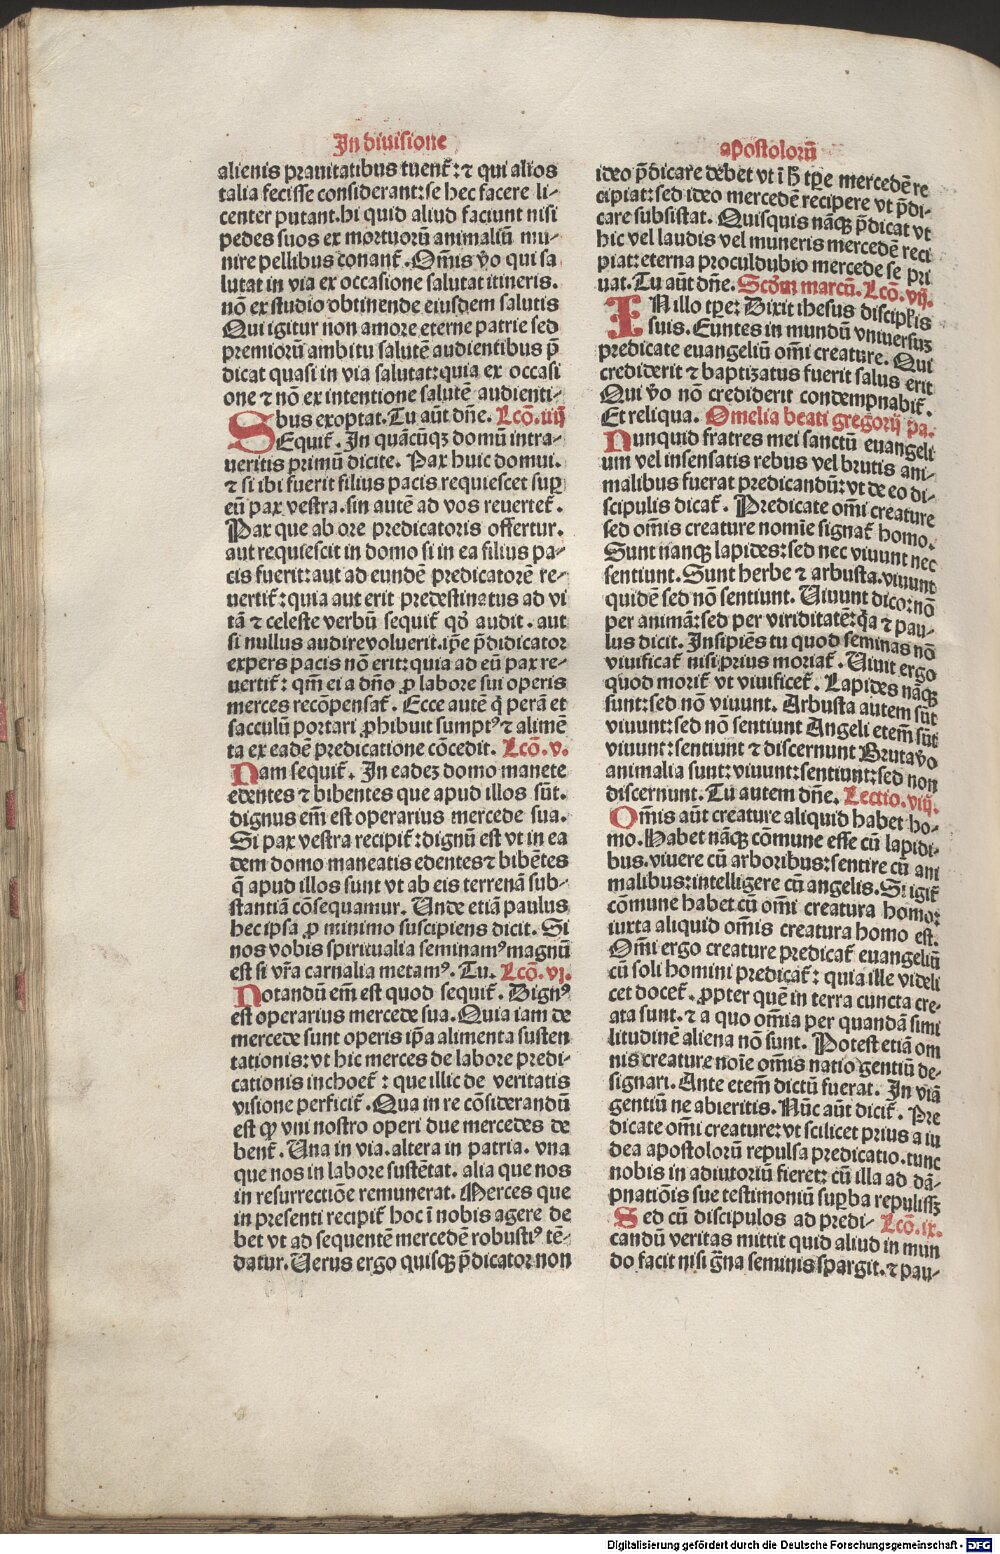 In diuisione
alienis prauitatibus tuent̃: ⁊ qui alios
talia fecisse considerant: se hec facere li-
center putant. hi quid aliud faciunt nisi
pedes suos ex mortuorũ animaliũ mu-
nire pellibus conant̃. Om̃is ṽo qui sa
lutat in via ex occasione salutat itineris.
nõ ex studio obtinende eiusdem salutis
Qui igitur non amore eterne patrie sed
premiorũ ambitu salutẽ audientibus p̃
dicat quasi in via salutat: quia ex occasi
one ⁊ nõ ex intentione salutẽ audienti-
bus exoptat. Tu aũt dñe. Lcõ. iiij
SEquit̃. In quãcũqꝫ domũ intra-
ueritis primũ dicite. Pax huic domui.
⁊ si ibi fuerit filius pacis requiescet suꝑ
eũ pax vestra. sin autẽ ad vos reuertet̃.
Pax que ab ore predicatoris offertur.
aut requiescit in domo si in ea filius pa-
cis fuerit: aut ad eundẽ predicatorẽ re-
uertit̃: quia aut erit predestinatus ad vi
tã ⁊ celeste verbũ sequit̃ qd̕ audit. aut
si nullus audire voluerit. ip̃e p̃didicator
expers pacis nõ erit: quia ad eũ pax re-
uertit̃: qm̃ ei a dño ꝓ labore sui operis
merces recõpensat̃. Ecce autẽ q̃ perã et
sacculũ portari ꝓhibuit sumptꝰ ⁊ alimẽ
ta ex eadẽ predicatione cõcedit. Lcõ. v.
Nam sequit̃. In eadeꝫ domo manete
edentes ⁊ bibentes que apud illos sũt.
dignus em̃ est operarius mercede sua.
Si pax vestra recipit̃: dignũ est vt in ea
dem domo maneatis edentes ⁊ bibẽtes
q̃ apud illos sunt vt ab eis terrenã sub-
stantiã cõsequamur. Unde etiã paulus
hec ipsa ꝓ minimo suscipiens dicit. Si
nos vobis spiritualia seminamꝰ magnũ
est si vr̃a carnalia metamꝰ. Tu. Lcõ. vj.
Notandũ em̃ est quod sequit̃. Dignꝰ
est operarius mercede sua. Quia iam de
mercede sunt operis ip̃a alimenta susten
tationis: vt hic merces de labore predi-
cationis inchoet̃: que illic de veritatis
visione perficit̃. Qua in re cõsiderandũ
est ꝙ vni nostro operi due mercedes de
bent̃. Una in via. altera in patria. vna
que nos in labore sustẽtat. alia que nos
in resurrectiõe remunerat. Merces que
in presenti recipit̃ hoc ĩ nobis agere de
bet vt ad sequentẽ mercedẽ robustiꝰ tẽ-
datur. Uerus ergo quisqꝫ p̃dicator non
apostolorũ
ideo p̃dicare debet vt ĩ h̃ tꝑe mercedẽ re
cipiat: sed ideo mercedẽ recipere vt p̃di-
care subsistat. Quisquis nãqꝫ p̃dicat vt
hic vel laudis vel muneris mercedẽ reci
piat: eterna proculdubio mercede se pri
uat. Tu aũt dñe. Scd̕m marcũ. Lcõ. vij.
IN illo tꝑe: Dixit ihesus discipl̕is
suis. Euntes in mundũ vniuersuꝫ
predicate euangeliũ om̃i creature. Qui
crediderit ⁊ baptizatus fuerit salus erit
Qui ṽo nõ crediderit condempnabit̃.
Et reliqua. Omelia beati gregorij pa.
Nunquid fratres mei sanctũ euangeli
um vel insensatis rebus vel brutis ani-
malibus fuerat predicandũ: vt de eo di-
scipulis dicat̃. Predicate om̃i creature
sed om̃is creature nomĩe signat̃ homo.
Sunt nanqꝫ lapides: sed nec viuunt nec
sentiunt. Sunt herbe ⁊ arbusta. viuunt
quidẽ sed nõ sentiunt. Uiuunt dico: nõ
per animã: sed per viriditatẽ: q̃a ⁊ pau-
lus dicit. Insipiẽs tu quod seminas nõ
viuificat̃ nisi prius moriat̃. Uiuit ergo
quod morit̃ vt viuificet̃. Lapides nãqꝫ
sunt: sed nõ viuunt. Arbusta autem sũt
viuunt: sed nõ sentiunt Angeli etem̃ sũt
viuunt: sentiunt ⁊ discernunt Bruta ṽo
animalia sunt: viuunt: sentiunt: sed non
discernunt. Tu autem dñe. Lectio. viij.
Om̃is aũt creature aliquid habet ho-
mo. Habet nãqꝫ cõmune esse cũ lapidi-
bus. viuere cũ arboribus: sentire cũ ani
malibus: intelligere cũ angelis. Si igit̃
cõmune habet cũ om̃i creatura homo:
iuxta aliquid om̃is creatura homo est.
Om̃i ergo creature predicat̃ euangeliũ
cũ soli homini predicat̃: quia ille videli
cet docet̃. ꝓpter quẽ in terra cuncta cre-
ata sunt. ⁊ a quo om̃ia per quandã simi
litudinẽ aliena nõ sunt. Potest etiã om
nis creature noĩe om̃is natio gentiũ de-
signari. Ante etem̃ dictũ fuerat. In viã
gentiũ ne abieritis. Nũc aũt dicit̃. Pre
dicate om̃i creature: vt scilicet prius a iu
dea apostolorũ repulsa predicatio. tunc
nobis in adiutoriũ fieret: cũ illa ad dã-
pnatiõis sue testimoniũ suꝑba repulisꝫ
Sed cũ discipulos ad predi- Lcõ. ix.
candũ veritas mittit quid aliud in mun
do facit nisi g̃na seminis spargit. ⁊ pau-
Digitalisierung gefördert durch die Deutsche Forschungsgemeinschaft - DFG